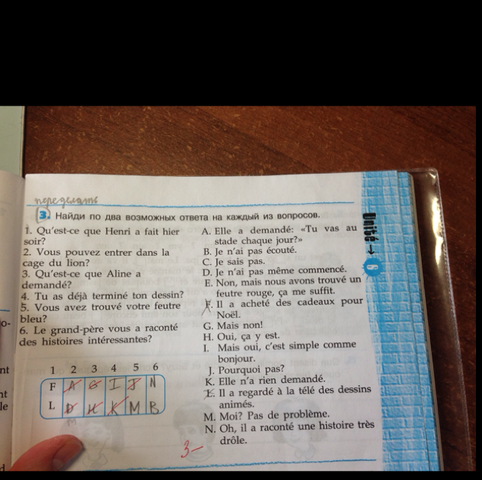 переделать
3. Найди по два возможных ответа на каждый из вопросов.
1. Qu'est-ce que Henri a fait hier
soir?
2. Vous pouvez entrer dans la
cage du lion?
3. Qu'est-ce que Aline a
demandé?
4. Tu as déjà terminé ton dessin?
5. Vous avez trouvé votre feutre
bleu?
6. Le grand-père vous a raconté
des histoires intéressantes?
1 2 3 4 5 6
F A G I J N
L D H K M B
3-
A. Elle a demandé: «Tu vas au
stade chaque jour?»
B. Je n'ai pas écouté.
C. Je sais pas.
D. Je n'ai pas même commencé.
E. Non, mais nous avons trouvé un
feutre rouge, ça me suffit.
F. Il a acheté des cadeaux pour
Noël.
G. Mais non!
H. Oui, ça y est.
I. Mais oui, c'est simple comme
bonjour.
J. Pourquoi pas?
K. Elle n'a rien demandé.
L. Il a regardé à la télé des dessins
animés.
M. Moi? Pas de problème.
N. Oh, il a raconté une histoire très
drôle.
Unité 6